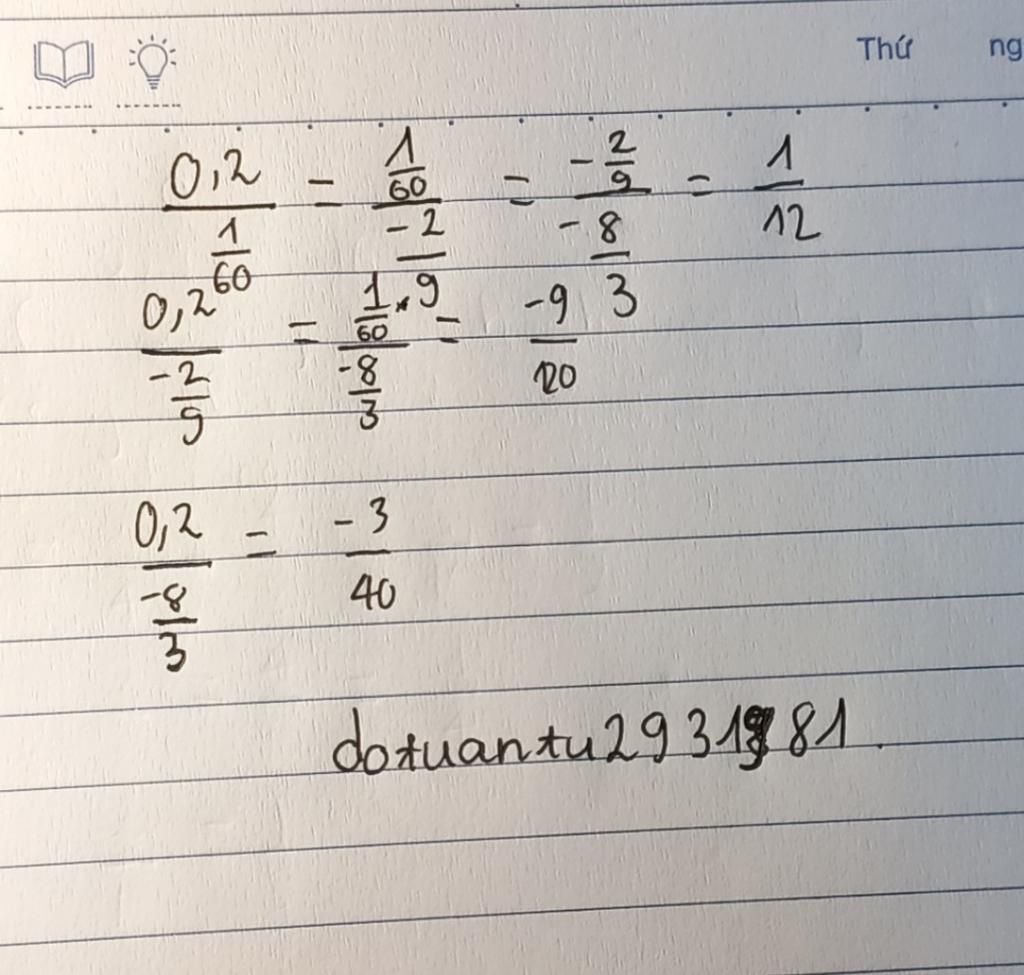 Thứ ng
0,2/(1/60) - (1/60)/(-2/9) = (-2/9)/(-8/3) = 1/12
0,2/(-2/9) = (1/60)/(-8/3) = -9/120
0,2/(-8/3) = -3/40
dotuantu2931 81